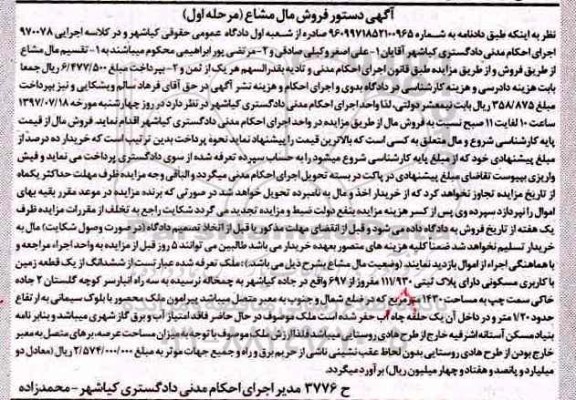 آگهی دستور فروش مال مشاع (مرحله اول)
نظر به اینکه طبق دادنامه به شماره ۹۶۰۹۹۷۱۸۵۲۱۰۰۹۶۵ صادره از شعبه اول دادگاه عمومی حقوقی کیاشهر و در کلاسه اجرایی ۹۷۰۰۷۸
اجرای احکام مدنی دادگستری کیاشهر آقایان ۱-علی اصغر وکیلی صادقی و ۲-مرتضی پور ابراهیمی محکوم میباشند به ۱- تقسیم مال مشاع
از طریق فروش و از طریق مزایده طبق قانون اجرای احکام مدنی و تادیه بقدرالسهم هر یک از ثمن و ۲-بپرداخت مبلغ ۶/۴۷۷/۵۰۰ ریال جمعا
بابت هزینه دادرسی و هزینه کارشناسی در دادگاه بدوی و اجرای احکام و هزینه نشر آگهی در حق آقای فرهاد سالم ویشکایی و نیز بپرداخت
مبلغ ۳۵۸/۸۷۵ ریال بابت نیمعشر دولتی، لذا واحد اجرای احکام مدنی دادگستری کیاشهر در نظر دارد در روز چهارشنبه مورخه ۱۳۹۷/۰۷/۱۸
ساعت ۱۰ لغایت ۱۱ صبح نسبت به فروش مال از طریق مزایده در واحد اجرای احکام مدنی دادگستری کیاشهر اقدام نماید. فروش مال از قیمت
پایه کارشناسی شروع و مال متعلق به کسی است که بالاترین قیمت را پیشنهاد نماید نحوه پرداخت بدین ترتیب است که خریدار ده درصد از
مبلغ پیشنهادی خود که از مبلغ پایه کارشناسی شروع میشود را به حساب سپرده تعرفه شده از سوی دادگستری پرداخت می نماید و فیش
واریزی بپیوست تقاضای مبلغ پیشنهادی در پاکت در بسته تحویل اجرای احکام مدنی میگردد و الباقی وجه مزایده ظرف مهلت حداکثر یکماه
از تاریخ مزایده تجاوز نخواهد کرد که از خریدار اخذ و مال به نامبرده تحویل خواهد شد در صورتی که برنده مزایده در موعد مقرر بقیه بهای
اموال را نپردازد سپرده وی پس از کسر هزینه مزایده بنفع دولت ضبط و مزایده تجدید می گردد شکایت راجع به تخلف از مقررات مزایده ظرف
یک هفته از تاریخ فروش به دادگاه داده می شود و قبل از انقضای مهلت مذکور یا قبل از اتخاذ تصمیم دادگاه (در صورت وصول شکایت) مال به
خریدار تسلیم نخواهد شد ضمنا کلیه هزینه های متصور بعهده خریدار می باشد طالبین می توانند ۵ روز قبل از مزایده به واحد اجراء مراجعه و
با هماهنگی اجراء از اموال بازدید نمایند. (وضعیت مال مشاع بشرح ذیل می باشد): ملک تعرفه شده عبارت است از ششدانگ از یک قطعه زمین
با کاربری مسکونی دارای پلاک ثبتی ۱۱۱/۹۳۰ مفروز از ۶۹۷ واقع در جاده کیاشهر به چمخاله نرسیده به سه راه انبارسر کوچه گلستان ۲ جاده
خاکی سمت چپ به مساحت ۱۴۳۰ متر مربع که در ضلع شمال و جنوب به معبر متصل میباشد پیرامون ملک محصور با بلوک سیمانی به ارتفاع
حدود ۱/۲۰ متر و در داخل آن یک حلقه چاه آب حفر شده است ملک موصوف در حال حاضر فاقد امتیاز آب و برق گاز شهری میباشد و بنابر نامه
بنیاد مسکن آستانه اشرفیه خارج از طرح هادی روستایی میباشد فلذا ارزش ملک موصوف با توجه به میزان مساحت عرصه، برهای متصل به معبر
خارج بودن از طرح هادی روستایی بدون لحاظ عقب نشینی ناشی از حریم برق و راه و جمیع جهات موثر به مبلغ ۲/۵۷۴/۰۰۰/۰۰۰ ریال (معادل دو
میلیارد و پانصد و هفتاد و چهار میلیون ریال) برآورد میگردد.
ح ۳۷۷۶ مدیر اجرای احکام مدنی دادگستری کیاشهر - محمدزاده